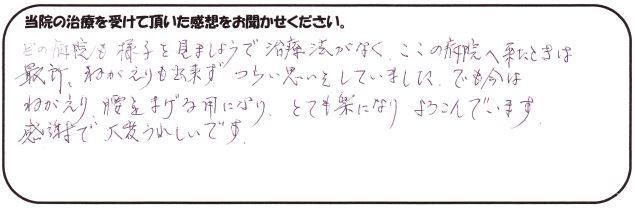 当院の治療を受けて頂いた感想をお聞かせください。
どの病院も様子を見ましょうで治療法がなく、ここの病院へ来たときは
最初、ねがえりも出来ず つらい思いをしていました、でも今は
ねがえり、腰をまげる用になり、とても楽になり よろこんでいます
感謝で 大変うれしいです。